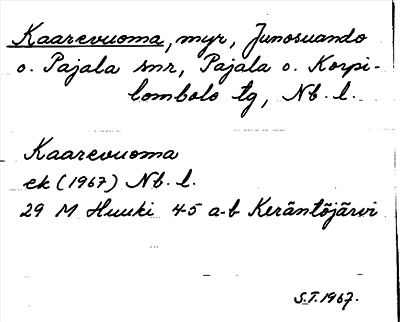 Kaarevuoma, myr, Junosuando
o. Pajala snr, Pajala o. Korpi-
lombolo tg, Nb. l.
Kaarevuoma
ek (1967) Nb. l.
29 M Huuki 45 a-b Keräntöjärvi
S.T. 1967.